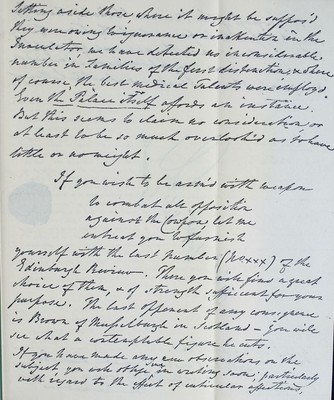 Setting aside those, where it might be suppos'd
they were owing to ignorance or inattention in the
Inoculator, we have detected no inconsiderable
number in Families of the first distinction, where
of course, the best medical Talents were employ'd.
Even the Palace itself affords an instance.
But this seems to claim no consideration, or
at least to be so much overlook'd as to have
little or no weight.
If you wish to be arm'd with weapon
to combat all opposition
against the Cowpox let me
intreat you to furnish
yourself with the last number (No xxx) of the
Edinburgh Review. There you will find a great
choice of them, & of strength sufficient for your
purpose. The last opponent of any consequence
is Brown of Musselburgh in Scotland - You will
see what a contemptible figure he cuts.
If you have made any new observations on the
subject, you will oblige me in writing soon; particularly
with regard to the effect of cuticular affections,